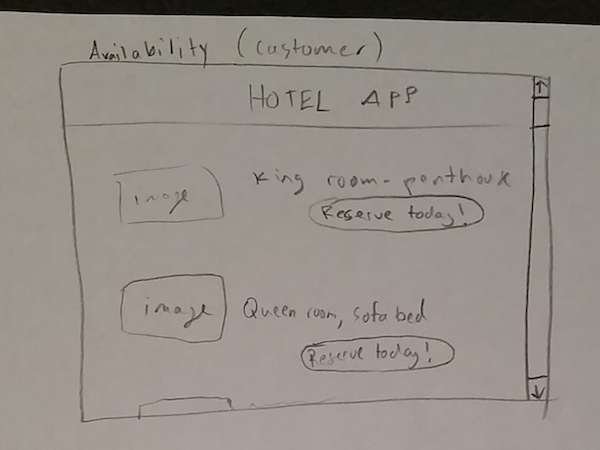 Availability (customer)
HOTEL APP
image
King room - penthouse
Reserve today!
image
Queen room, sofa bed
Reserve today!